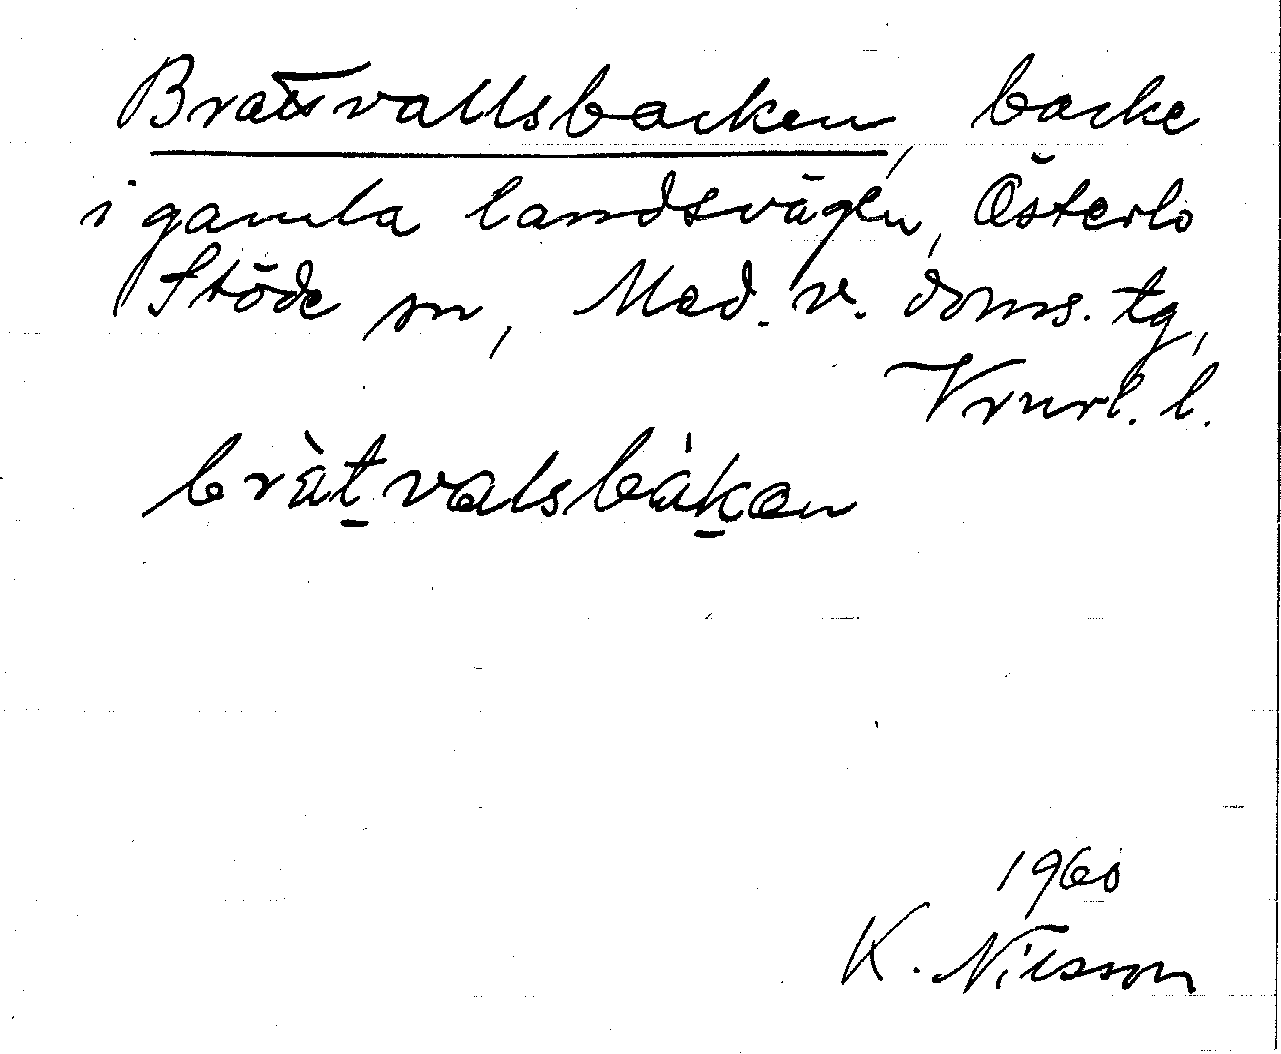 Brattvallsbacken, backe
i gamla landsvägen, Österlo
Stöde sn, Med. v. doms. tg,
Vrnrl. l.
bràt̲valsbák̲an
1960
K. Nilsson